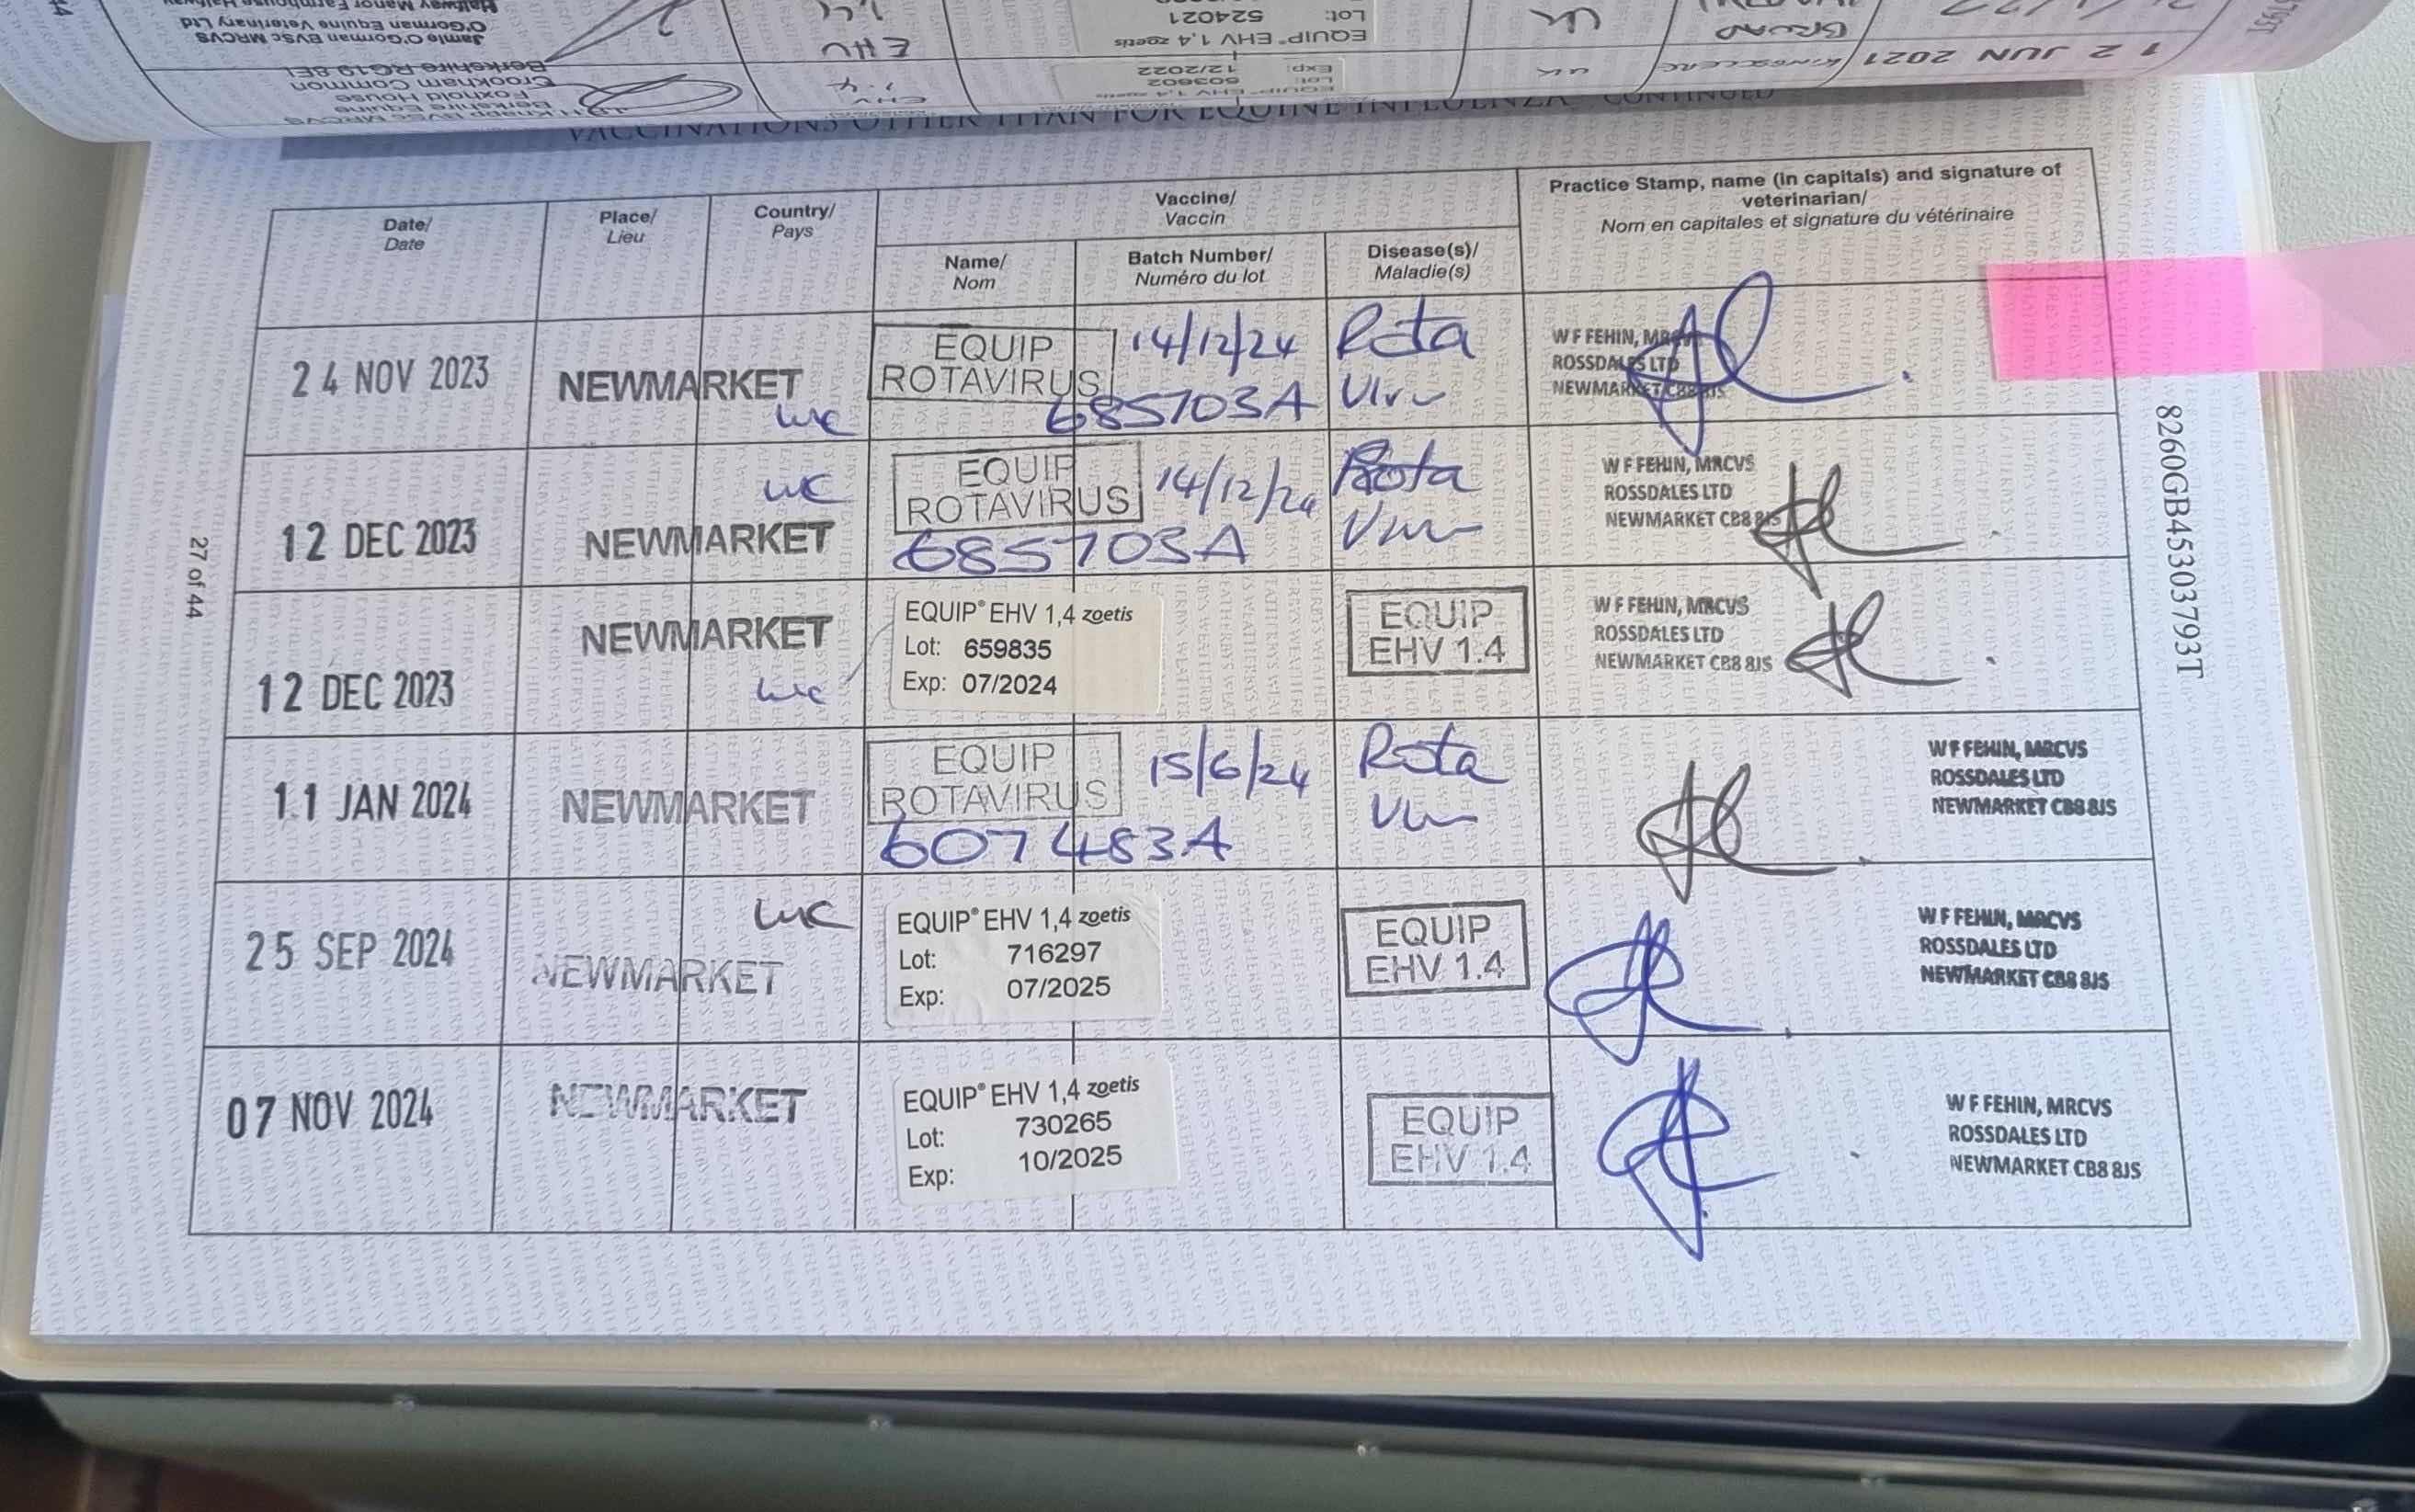 12 JUN 2021
UK
EHV
1.4
EQUIP® EHV 1,4 zoetis
Lot: 503602
Exp: 12/2022
Knapp BVSc MRCVS
Berkshire Equine
Foxhold House
Crookham Common
Berkshire RG19 8EL
BROAD
UK
EQUIP® EHV 1,4 zoetis
Lot: 524021
EHV
1,4
Jamie O'Gorman BVSc MRCVS
O'Gorman Equine Veterinary Ltd
Halfway Manor Farmhouse Halfway
VACCINATIONS OTHER THAN FOR EQUINE INFLUENZA CONTINUED
Date/
Date
Place/
Lieu
Country/
Pays
Vaccine/
Vaccin
Name/
Nom
Batch Number/
Numéro du lot
Disease(s)/
Maladie(s)
Practice Stamp, name (in capitals) and signature of
veterinarian/
Nom en capitales et signature du vétérinaire
24 NOV 2023
NEWMARKET
UK
EQUIP
ROTAVIRUS
14/12/24
685703A
Rota
Virus
W F FEHIN, MRCVS
ROSSDALES LTD
NEWMARKET CB8 8JS
12 DEC 2023
UK
NEWMARKET
EQUIP
ROTAVIRUS
14/12/24
685703A
Rota
Virus
W F FEHIN, MRCVS
ROSSDALES LTD
NEWMARKET CB8 8JS
12 DEC 2023
NEWMARKET
UK
EQUIP® EHV 1,4 zoetis
Lot: 659835
Exp: 07/2024
EQUIP
EHV 1.4
W F FEHIN, MRCVS
ROSSDALES LTD
NEWMARKET CB8 8JS
11 JAN 2024
NEWMARKET
EQUIP
ROTAVIRUS
15/6/24
607483A
Rota
Virus
W F FEHIN, MRCVS
ROSSDALES LTD
NEWMARKET CB8 8JS
25 SEP 2024
UK
NEWMARKET
EQUIP® EHV 1,4 zoetis
Lot: 716297
Exp: 07/2025
EQUIP
EHV 1.4
W F FEHIN, MRCVS
ROSSDALES LTD
NEWMARKET CB8 8JS
07 NOV 2024
NEWMARKET
EQUIP® EHV 1,4 zoetis
Lot: 730265
Exp: 10/2025
EQUIP
EHV 1.4
W F FEHIN, MRCVS
ROSSDALES LTD
NEWMARKET CB8 8JS
27 of 44
8260GB45303793T